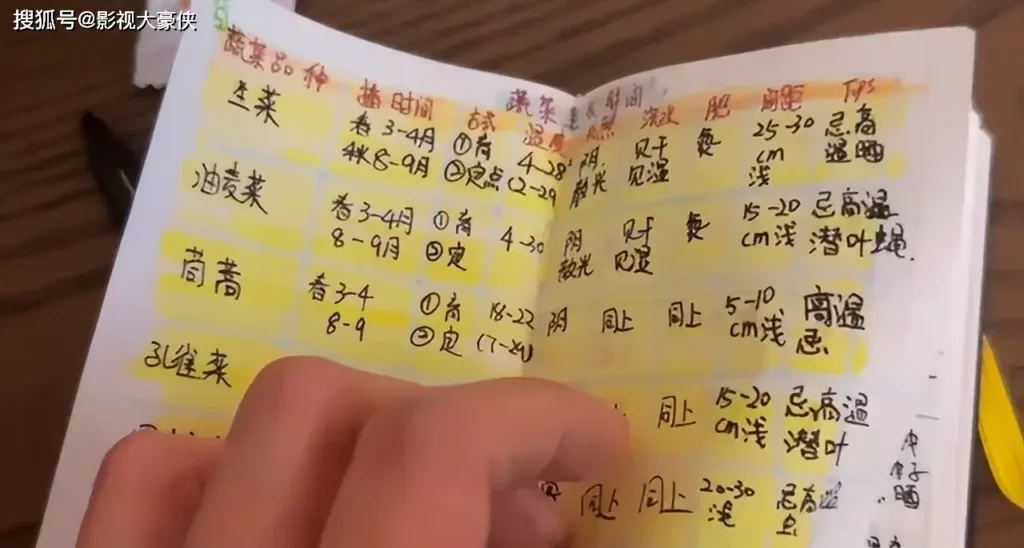 搜狐号@影视大豪侠
蔬菜品种 播时间 方式 温度 浇水 肥 间距 TPS
蔬菜 时间
生菜 春3-4月 ①育 4-28 阴 见干 氮 25-30 忌高
秋8-9月 ②定点 (2-29 散光 见湿 cm 温晒
浅
油麦菜 春3-4月 ①育 4-30 阴 见干 氮 15-20 忌高温
8-9月 ②定 散光 见湿 cm浅 潜叶蝇.
茼蒿 春3-4 ①育 18-22 阴 同上 同上 5-10 高温
8-9 ②定 (7-29) cm浅 忌.
孔雀菜 同上 15-20 忌高温
cm浅 潜叶
同上 同上 20-30 忌高温
浅
晒